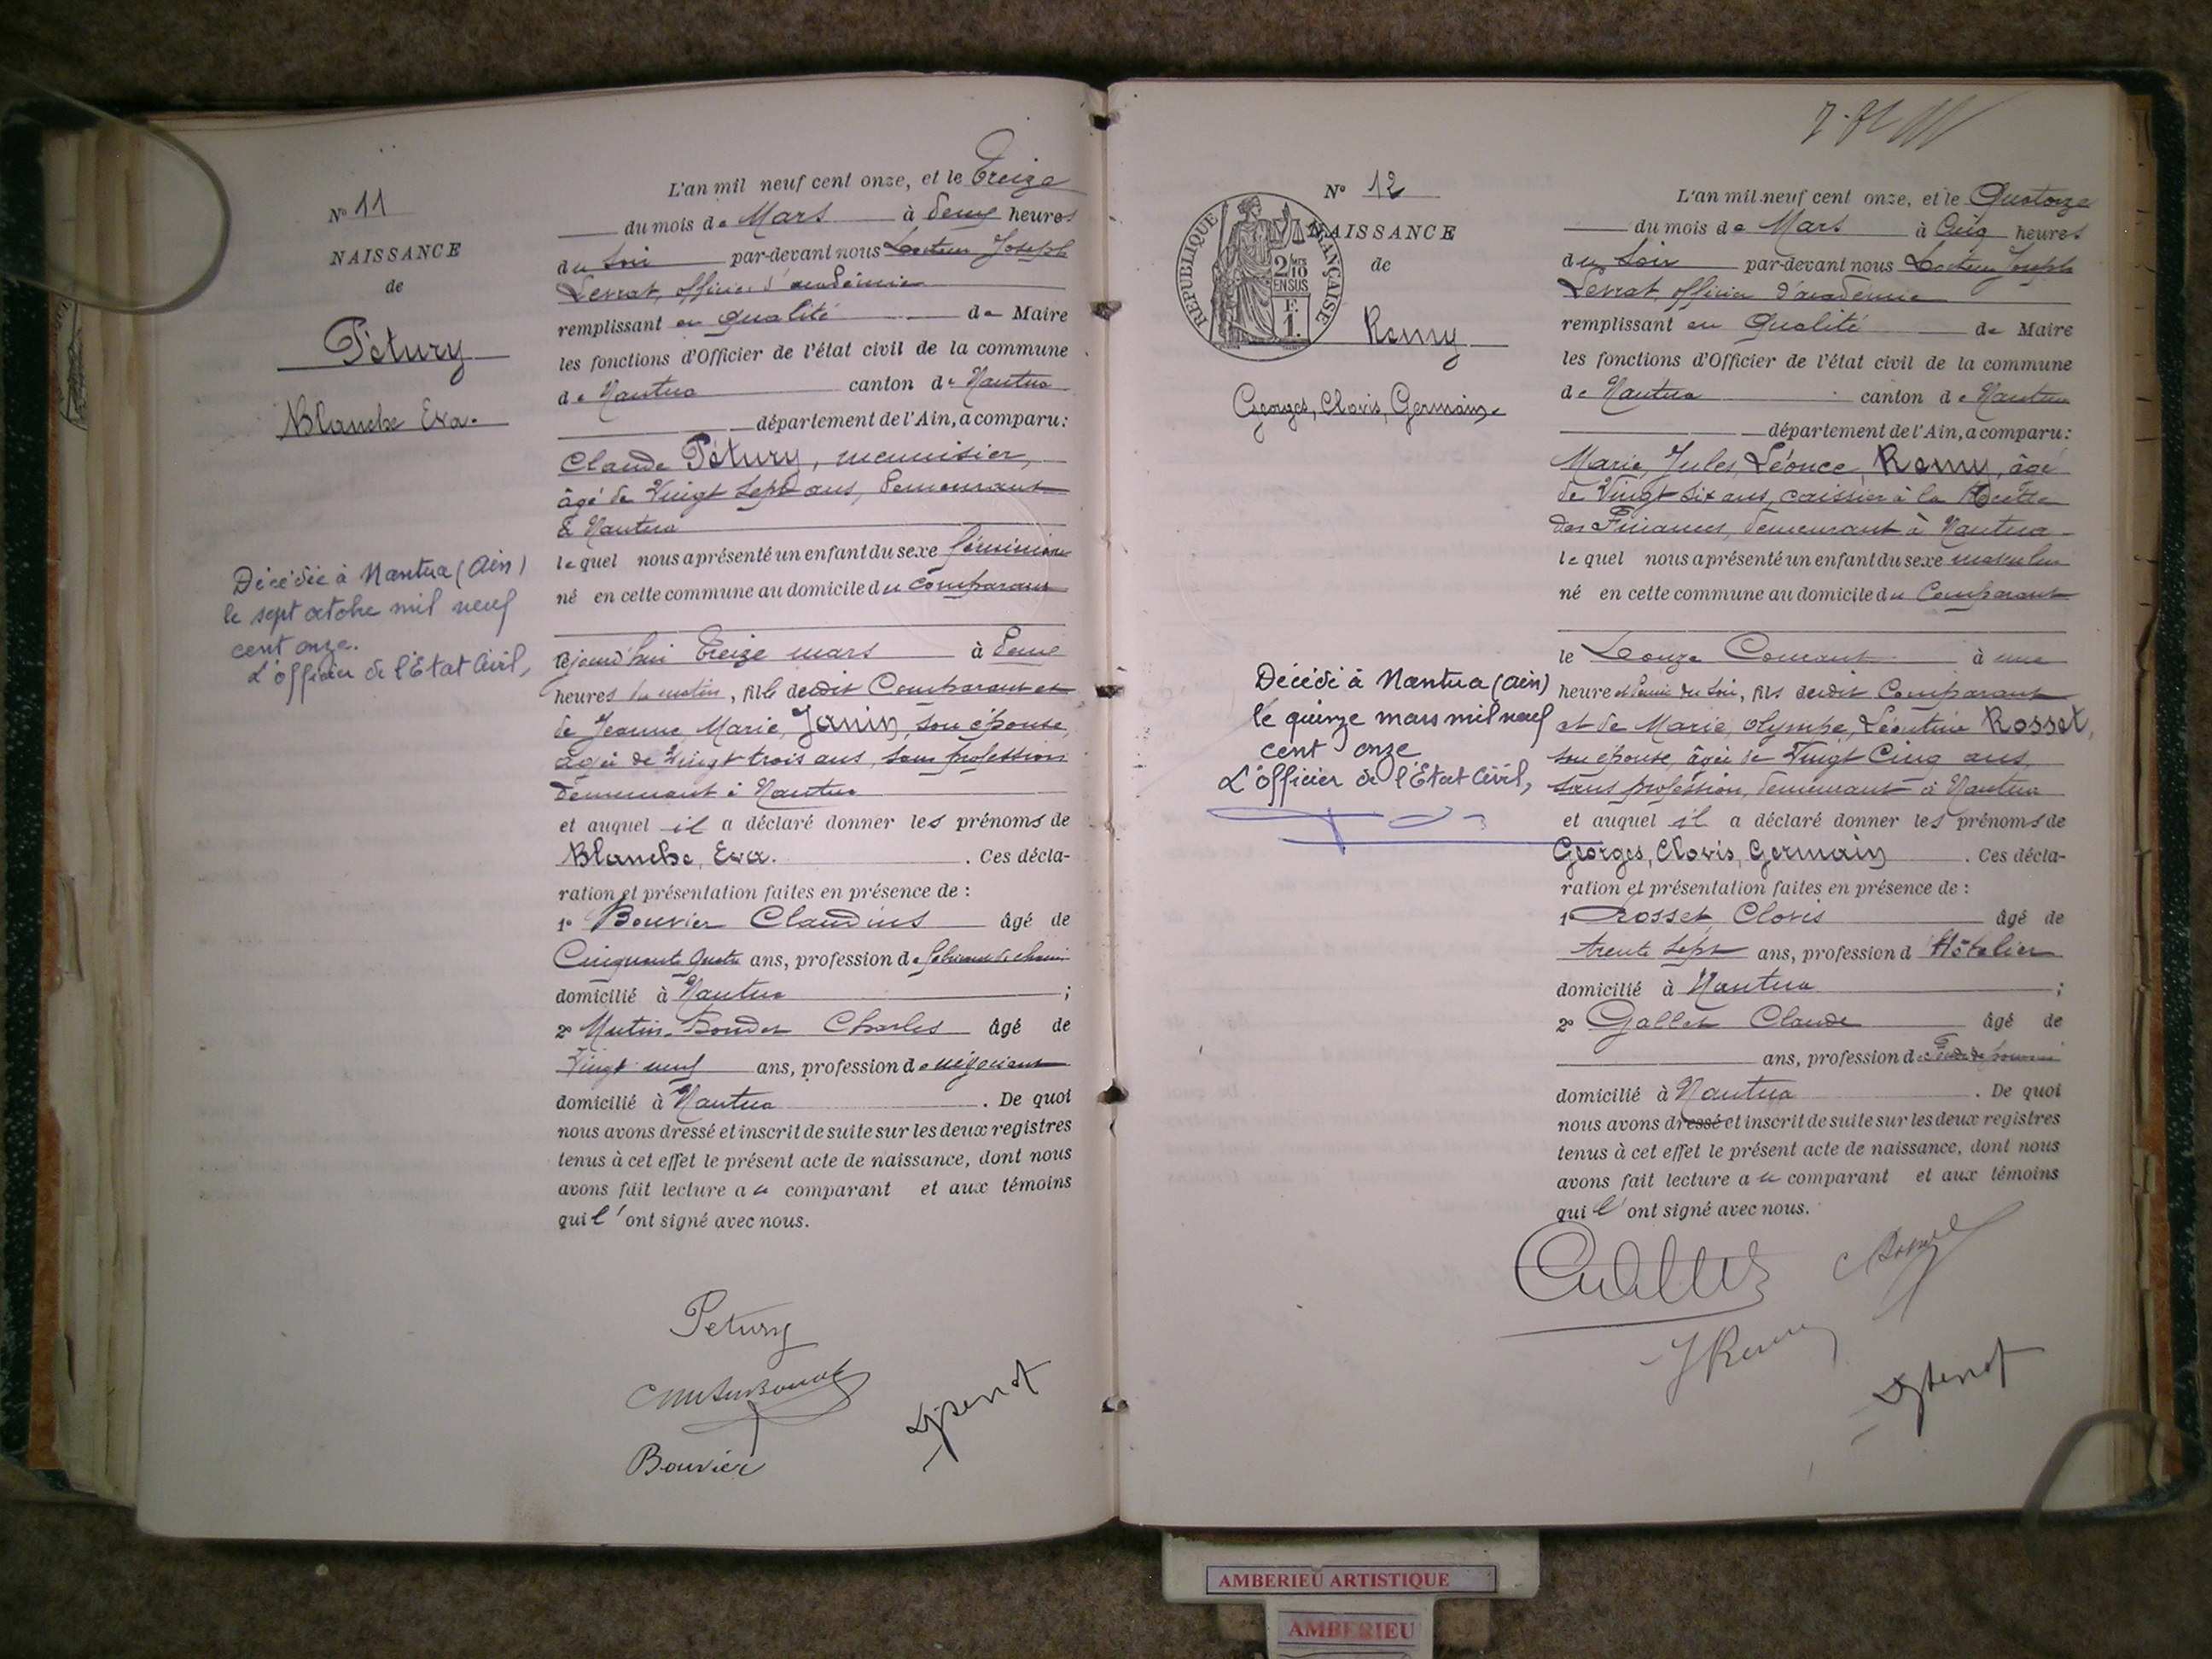 N° 11
NAISSANCE
de
Pétury
Blanche Eva.
Décédée à Nantua (Ain)
le sept octobre mil neuf
cent onze.
L'officier de l'Etat Civil,
L'an mil neuf cent onze, et le Treize
du mois de Mars à deux heures
du Soir par-devant nous Docteur Joseph
Levrat, officier d'académie
remplissant en qualité de Maire
les fonctions d'Officier de l'état civil de la commune
de Nantua canton de Nantua
département de l'Ain, a comparu:
Claude Pétury, menuisier,
âgé de Vingt sept ans, demeurant
à Nantua
lequel nous a présenté un enfant du sexe féminin
né en cette commune au domicile du Comparant
cejourd'hui Treize mars à deux
heures du matin, fille dudit Comparant et
de Jeanne Marie Janin, son épouse,
âgée de Vingt trois ans, sans profession
demeurant à Nantua
et auquel il a déclaré donner les prénoms de
Blanche, Eva. Ces décla-
ration et présentation faites en présence de :
1° Bouvier Claudius âgé de
Cinquante quatre ans, profession de
domicilié à Nantua ;
2° Mutin-Boudet Charles âgé de
Vingt neuf ans, profession de négociant
domicilié à Nantua. De quoi
nous avons dressé et inscrit de suite sur les deux registres
tenus à cet effet le présent acte de naissance, dont nous
avons fait lecture au comparant et aux témoins
qui l'ont signé avec nous.
Petury
Bouvier
N° 12
NAISSANCE
de
RÉPUBLIQUE FRANÇAISE
2/10
EN SUS
F.
1.
Remy
Georges, Clovis, Germain
Décédé à Nantua (Ain)
le quinze mars mil neuf
cent onze
L'officier de l'Etat Civil,
L'an mil neuf cent onze, et le Quatorze
du mois de Mars à Cinq heures
du Soir par-devant nous Docteur Joseph
Levrat, officier d'académie
remplissant en Qualité de Maire
les fonctions d'Officier de l'état civil de la commune
de Nantua canton de Nantua
département de l'Ain, a comparu:
Marie, Jules, Léonce, Remy, âgé
de Vingt six ans, caissier à la Recette
des Finances, demeurant à Nantua
lequel nous a présenté un enfant du sexe masculin
né en cette commune au domicile du Comparant
le Douze Courant à une
heure et demie du soir, fils dudit Comparant
et de Marie, Olympe, Léontine Rosset,
son épouse, âgée de Vingt Cinq ans,
sans profession, demeurant à Nantua
et auquel il a déclaré donner les prénoms de
Georges, Clovis, Germain. Ces décla-
ration et présentation faites en présence de :
1° Rosset Clovis âgé de
trente sept ans, profession d'Hôtelier
domicilié à Nantua ;
2° Gallet Claude âgé de
ans, profession de
domicilié à Nantua. De quoi
nous avons dressé et inscrit de suite sur les deux registres
tenus à cet effet le présent acte de naissance, dont nous
avons fait lecture au comparant et aux témoins
qui l'ont signé avec nous.
J Remy
AMBERIEU ARTISTIQUE
AMBERIEU